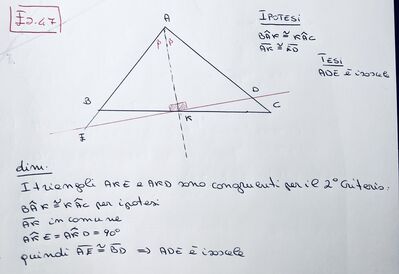 I2.47
IPOTESI
BÂK ≅ KÂC
AK ≅ ED
TESI
ADE è isoscele
A
B
C
D
E
K
dim.
I triangoli AKE e AKD sono congruenti per il 2° Criterio:
BÂK ≅ KÂC per ipotesi
AK in comune
AK̂E = AK̂D = 90°
quindi AE ≅ BD ⇒ ADE è isoscele